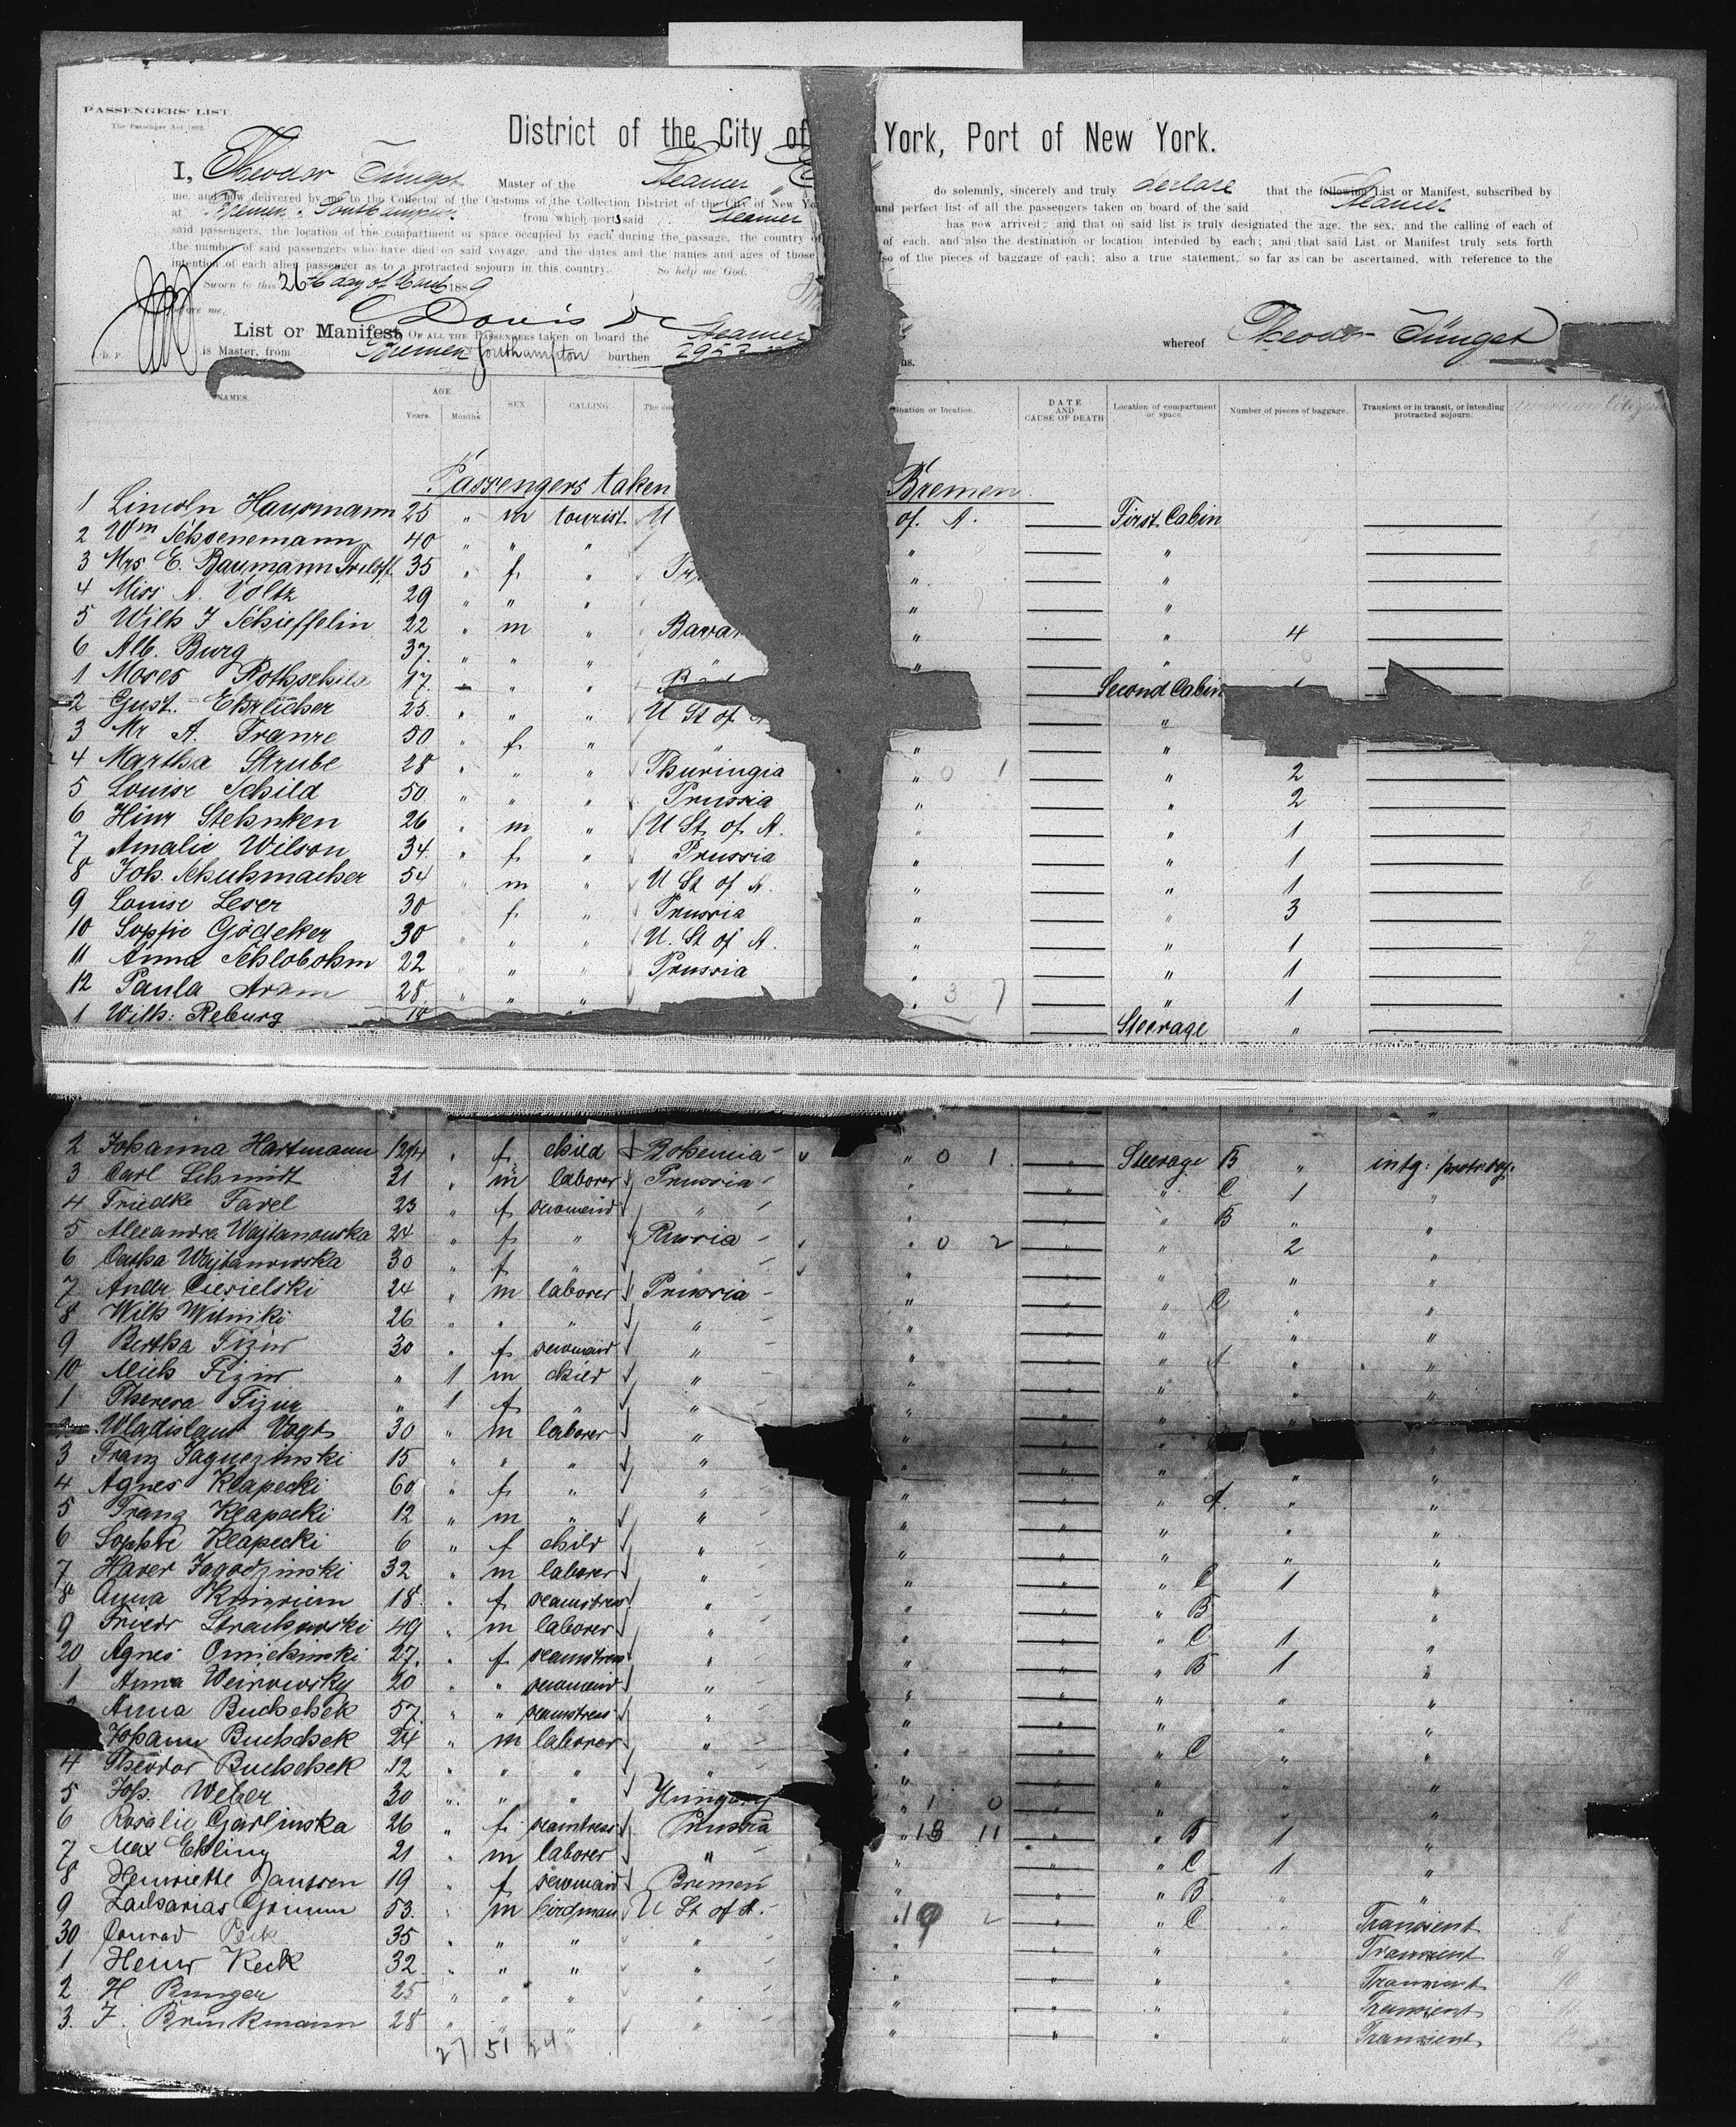 PASSENGERS' LIST.
The Passenger Act 1882.
District of the City of York, Port of New York.
I, Theodor Jüngst Master of the Steamer " do solemnly, sincerely and truly declare that the following List or Manifest, subscribed by
me and now delivered by me to the Collector of the Customs of the Collection District of the City of New and perfect list of all the passengers taken on board of the said Steamer
at Bremen & Southampton from which ports said Steamer has now arrived; and that on said list is truly designated the age, the sex, and the calling of each of
said passengers, the location of the compartment or space occupied by each during the passage, the country of each, and also the destination or location intended by each; and that said List or Manifest truly sets forth
the number of said passengers who have died on said voyage, and the dates and the names and ages of those of the pieces of baggage of each; also a true statement, so far as can be ascertained, with reference to the
intention of each alien passenger as to a protracted sojourn in this country. So help me God.
Sworn to this 26th day of 1889
before me, Theodor Jüngst
List or Manifest OF ALL THE PASSENGERS taken on board the Steamer whereof
is Master, from Bremen Southampton burthen 2953
NAMES. AGE. Years. Months. SEX CALLING. The ination or location. DATE AND CAUSE OF DEATH Location of compartment or space. Number of pieces of baggage. Transient or in transit, or intending protracted sojourn.
Passengers taken Bremen
1 Lincoln Hausmann 25 " m tourist U of A. First Cabin
2 Wm Schoenemann 40 " " " " "
3 Mrs E. Baumann 35 " f " " "
4 Miss A. Voltz 29 " " " " "
5 Wilh J Schieffelin 22 " m " Bavar " " 4
6 Alb. Burg 37 " " " " "
1 Moses Rothschild 17 " " Second Cabin
2 Gust. Ehrlicher 25 " " " U St of "
3 Mr A. Franre 50 " f " " " "
4 Martha Strube 28 " " " Thuringia " 0 1 " 2
5 Louise Schild 50 " " " Prussia " " 2
6 Hinr Stehnken 26 " m " U St of A. " " 1
7 Amalie Wilson 34 " f " Prussia " " 1
8 Joh. Schuhmacher 54 " m " U St of A. " " 1
9 Louise Leser 30 " f " Prussia " " 3
10 Sophie Gödeker 30 " " " U. St of A. " " 1
11 Anna Schlobohm 22 " " " Prussia " " 1
12 Paula Aram 28 " " " " 3 7 " 1
1 Wilh: Reburg 18 Steerage "
2 Johanna Hartmann " f child Bohemia " 0 1 " Steerage B " intg: protr soj:
3 Carl Schmidt 21 " m laborer Prussia " " " C 1 "
4 Friedke Favel 23 " f " " " " B " "
5 Alexandra Wajtanowska 24 " f " Russia " 0 2 " " 2 "
6 Cath Wajtanowska 30 " f " " " " " " "
7 Andr. Ciesielski 24 " m laborer Prussia " " " C " "
8 Wilh 26 " " " " " " " " "
9 Bertha Fizin 30 " f " " " " " "
10 Mich Fizin " 1 m child " " " " " "
1 Theresa Fizin " 1 f " " " " " "
Wladislaus Vogt 30 " m laborer " " " "
3 Franz 15 " " " " " " " " "
4 Agnes Klapecki 60 " f " " " " " A. " "
5 Franz Klapecki 12 " m " " " " " " "
6 Sophie Klapecki 6 " f child " " " " " "
7 Jagodzinski 32 " m laborer " " " " C 1 "
8 Anna 18 " f seamstress " " " " B "
9 Friedr 49 " m laborer " " " " C 1 "
20 Agnes 27 " f seamstress " " " " B 1 "
1 Anna 20 " " " " " " " "
Anna Buchchek 57 " " seamstress " " " " " "
Johann Buchchek 24 " m laborer " " " " C " "
4 Theodor Buchchek 12 " " " " " " " " "
5 Jos. Weber 30 " " " Hungary " 1 0 " " " "
6 Rosalie Garlinska 26 " f seamstress Prussia " 13 11 " " B 1 "
7 Max Ehling 21 " m laborer " " " " C 1 "
8 Henriette Janssen 19 " f Bremen " " " B "
9 Zacharias Grimm 53 " m birdman U St of A. " 19 2 " " C " Transient
30 Conrad 35 " " " " " " " " Transient
1 Heinr Keck 32 " " " " " " " " Transient
2 H Bunger 25 " " " " " " " " Transient
3. F. Brinkmann 28 " " " " " " " " Transient
27 51 24